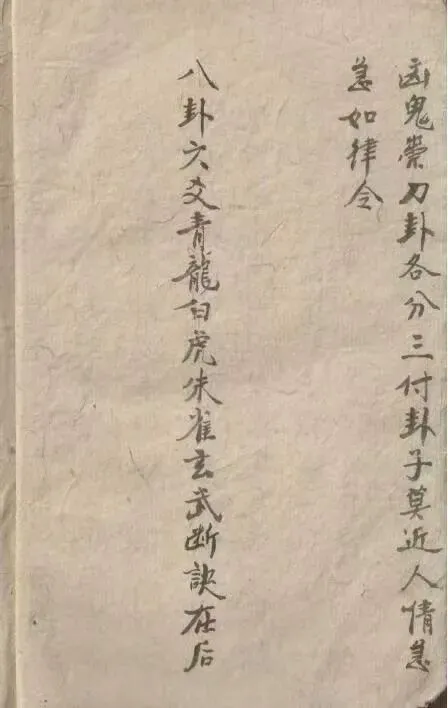 凶鬼祟刀卦各分三付卦子莫近人情急
急如律令
八卦六爻青龍白虎朱雀玄武断訣在后